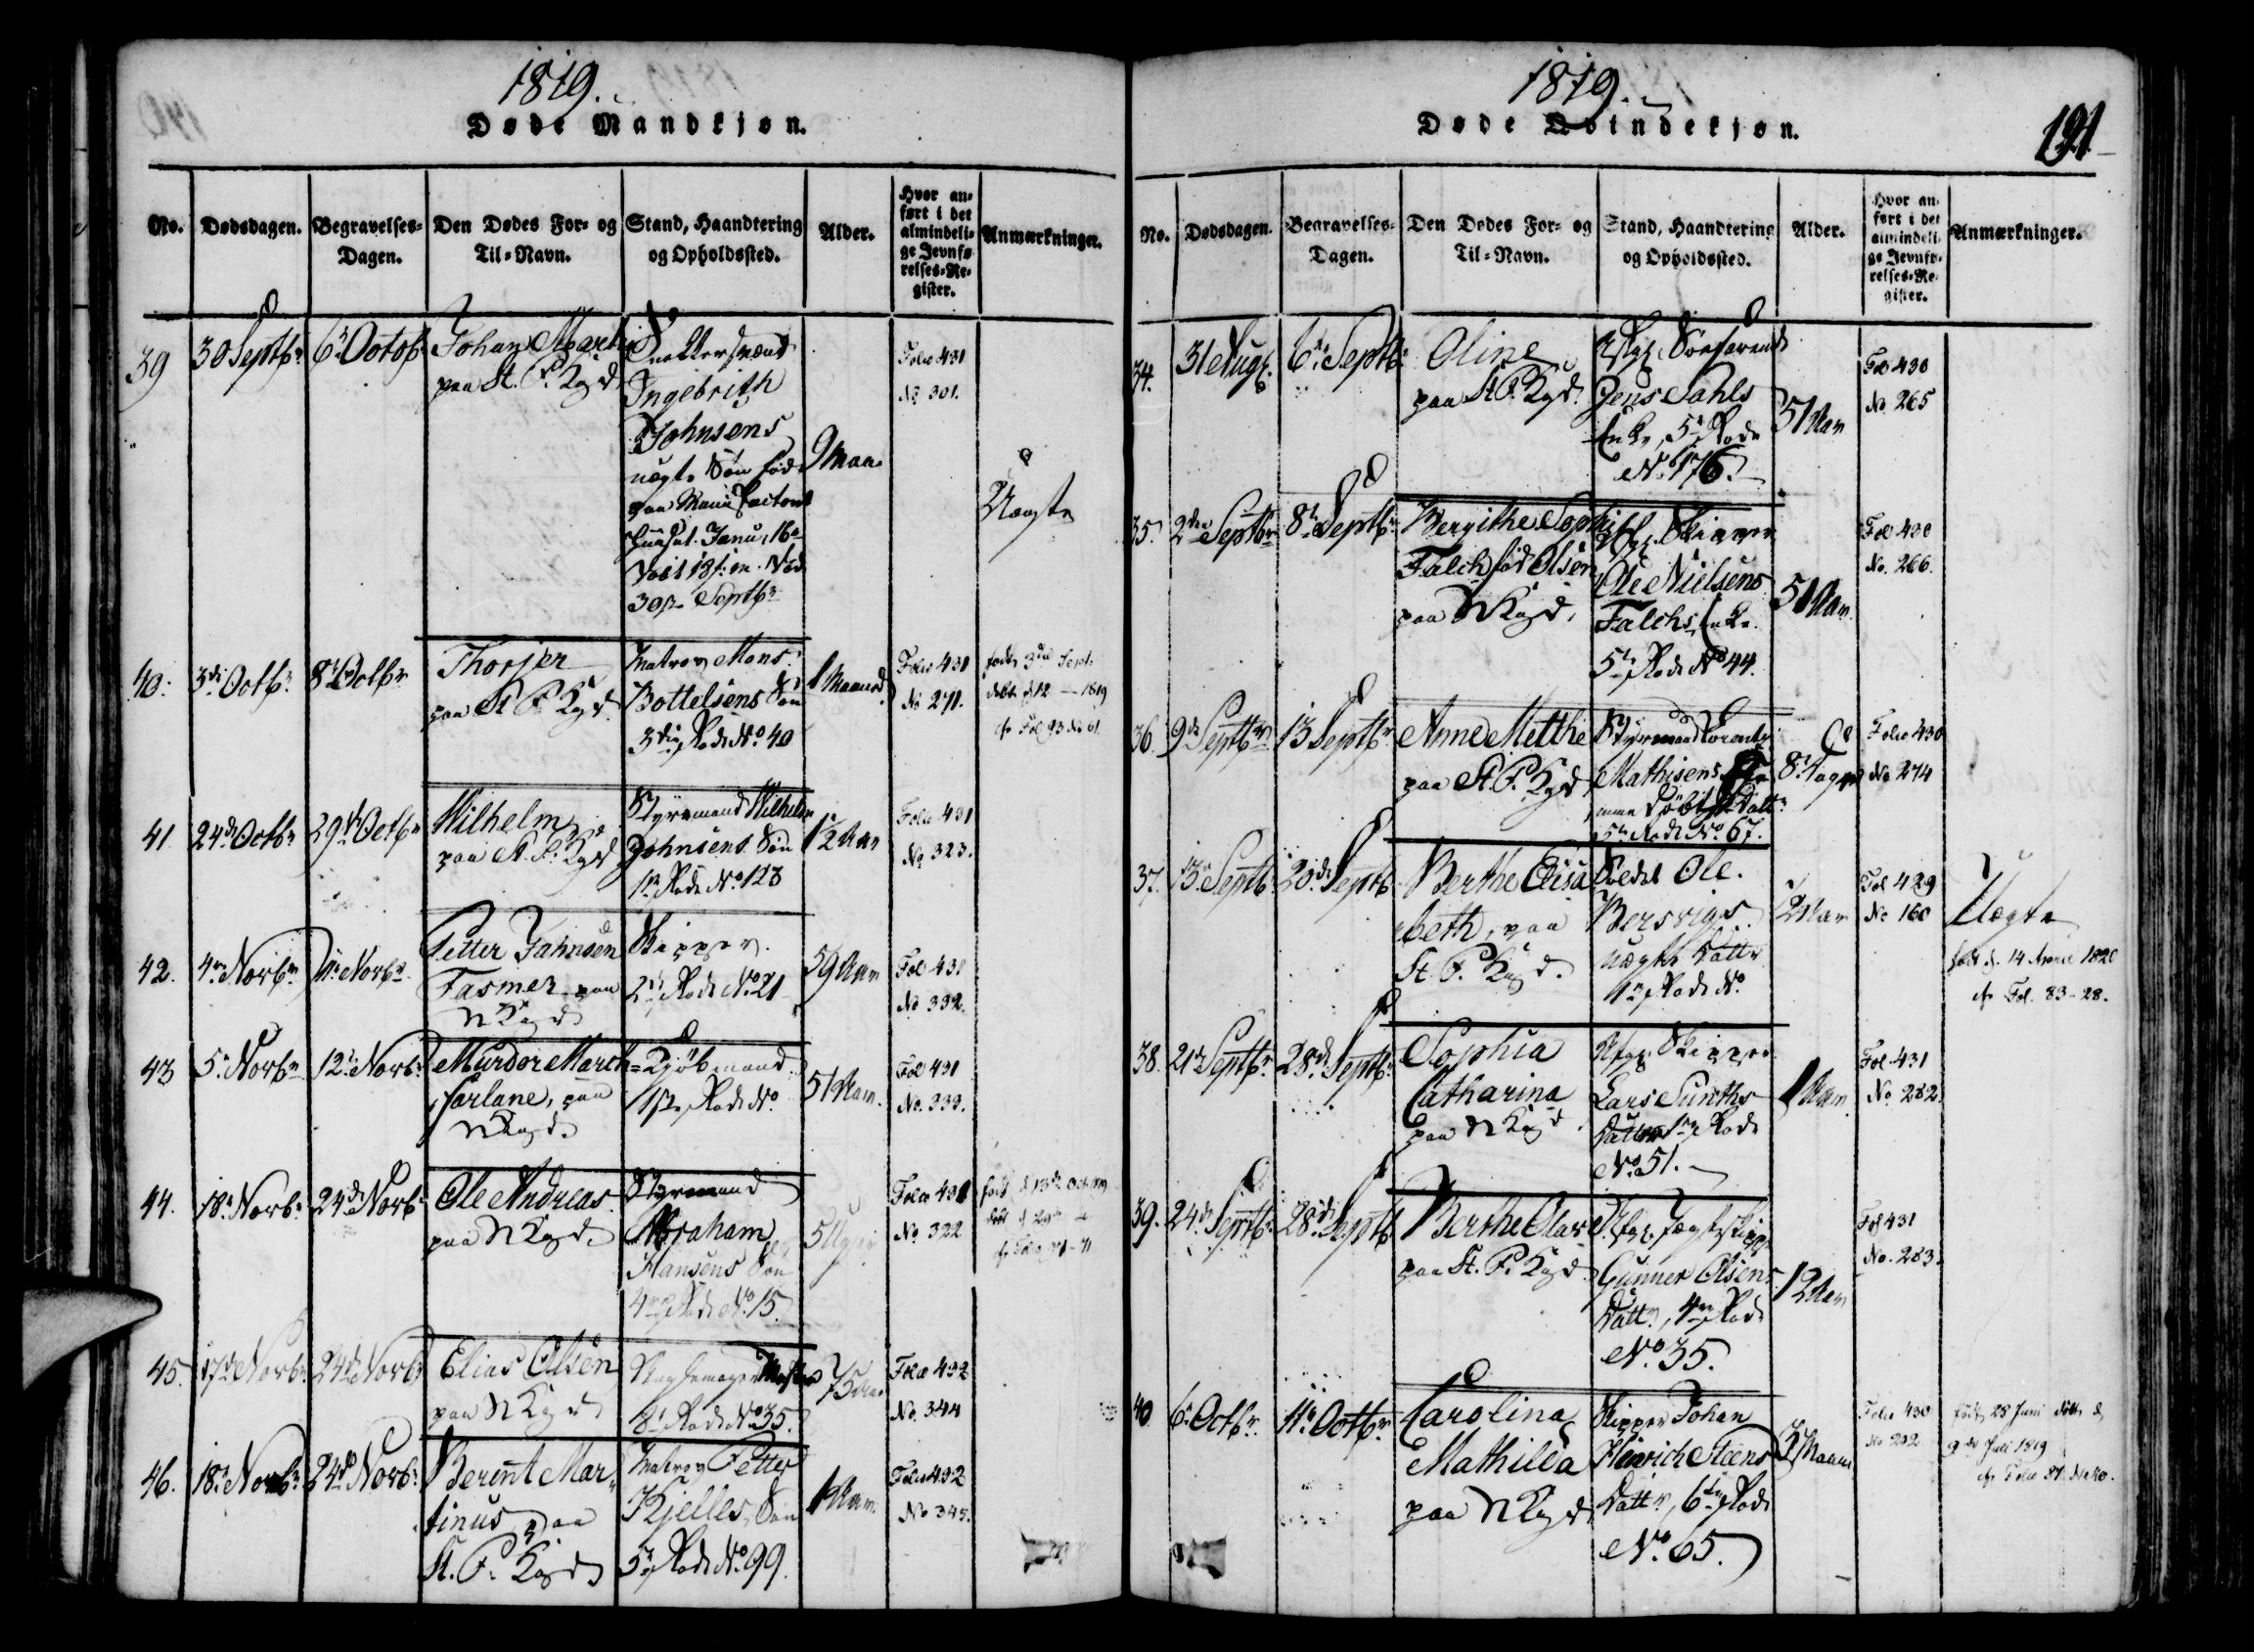 1819.
Døde Mandkjøn.
No.
Dødsdagen.
Begravelses-
Dagen.
Den Dødes For- og
Til-Navn.
Stand, Haandtering
og Opholdssted.
Alder.
Hvor an-
ført i det
almindeli-
ge Jevnfø-
relses-Re-
gister.
Anmærkninger.
39
30 Septbr
6te Octobr
Johan Martin
paa St. P. Kgd
Ingebrith
Johnsens
uægte Søn født
30te Septbr
9 Maan
Folio 431
No 301.
Uægte
40.
3de Octbr
8de Octbr
Thorjer
paa St P. Kgd
Matros Mons
Bottelsens Søn
3die Rode No 40
1 Maaned
Folio 431
No 271.
født 3die Sept.
døbt d 12 — 1819
cfr Fol 93 No 61
41
24de Octbr
29de Octbr
Wilhelm
paa St. P. Kgd
Styrmand Wilhelm
Johnsens Søn
1ste Rode No. 123
1/2 Aar
Folio 431
No 323.
42.
4de Novbr
11te Novbr
Petter Jahnsen
Fasmer paa
N Kgd
Skipper
2den Rode No. 21
59 Aar
Fol 431
No 332.
43
5te Novbr
12te Novbr
Murdor March
farlane, paa
N Kgd.
Kjøbmand
1ste Rode No.
51 Aar.
Fol 431
No. 333.
44.
18de Novbr
24de Novbr
Ole Andreas
paa N Kgd.
Styrmand
Abraham
Hansens Søn
4de Rode No. 15.
5 Uger
Folio 431
No 322
født d 13de Octbr
45.
17de Novbr
24de Novbr
Elias Olsen
paa N Kgd
8de Rode No 35.
75 Aar
Folio 432
No. 344
46.
18de Novbr
24de Novbr
Berent Mar-
tinus, paa
St. P. Kgd
Matros Petter
Kjelles Søn
5te Rode No. 99.
1 Aar.
Folio 432
No 345.
1819.
Døde Qvindekjøn.
191
No.
Dødsdagen.
Begravelses-
Dagen.
Den Dødes For- og
Til-Navn.
Stand, Haandtering
og Opholdssted.
Alder.
Hvor an-
ført i det
almindeli-
ge Jevnfø-
relses-Re-
gister.
Anmærkninger.
34.
31 Aug.
6te Septbr
Oline
paa St P. Kgd.
Afg. Søefarende
Jens Dahls
Enke, 5te Rode
No. 176.
51 Aar
Fol 430
No. 265
35.
2den Septbr
8de Septbr
Bergithe Sophie
Falch fød Olsen
paa N Kgd.
Afg. Skipper
Ole Nielsens
Falchs Enke
5te Rode No 44.
51 Aar.
Fol 430
No. 266.
36.
9de Septbr
13 Septbr
Anne Metthe
paa St. P. Kgd
Styrmand Lorentz
Mathisens
5te Rode No. 67.
8 Dage
Folio 430
No. 274
37.
13de Septbr
20de Septbr
Berthe Elisa
beth, paa
St. P. Kgd.
Ole
Bersvigs
uægte Datter
1ste Rode No.
2 Aar
Fol 429
No 160
Uægte
født d. 14 April 1820
cfr Fol. 83-28.
38.
21de Septbr
28de Septbr
Sophia
Catharina
paa N Kgd.
Afg. Skipper
Lars Sunths
Datter 1ste Rode
No. 51.
1 Aar.
Fol 431
No. 282.
39.
24de Septbr
28de Septbr
Berthe Olava
paa St. P. Kgd
Afg. Jægteskipper
Gunner Olsens
Dattr, 4de Rode
No. 35.
12 Aar
Fol 431
No. 283.
40
6te Octbr
11te Octbr
Carolina
Mathilda
paa N Kgd
Skipper Johan
Heinrich Steens
Dattr, 6te Rode
No. 65.
3 Maaned
Folio 430
No 292
født 28 Juni døbt d
9de Juli 1819
cfr Folio 87. No 20.